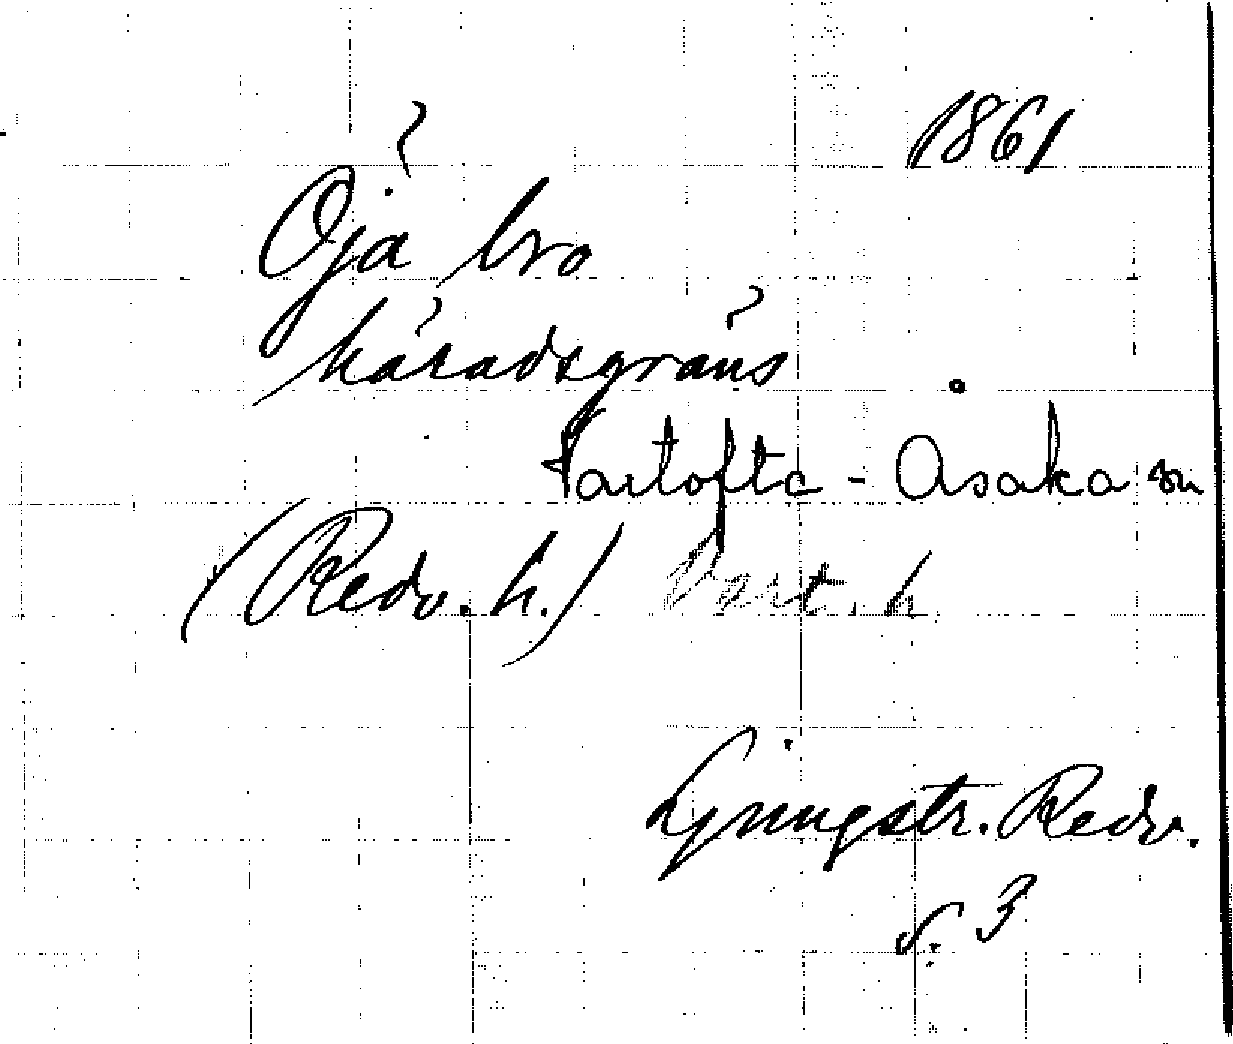 1861
Öja bro
häradsgräns
Vartofta - Åsaka sn
(Redv. h.) Vart. h
Ljungstr. Redv.
s. 3